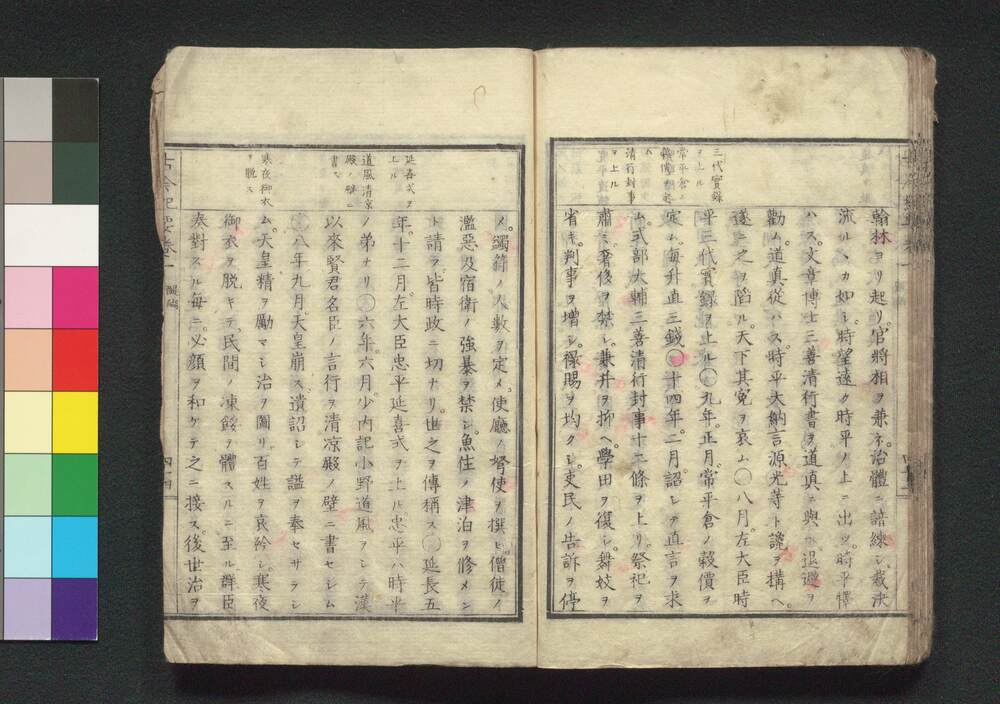 三代實録
ヲ上ル
常平倉ノ
清行封事
ヲ上ル
翰林ヨリ起リ。官將相ヲ兼ネ。治體ニ諳練シ。裁決
流ルヽカ如シ。時望遠ク時平ノ上ニ出ツ。時平憚
ハス。文章博士三善清行書ヲ道眞ニ與ヘ。退避ヲ
勸ム。道眞從ハス。時平大納言源光等ト讒ヲ搆ヘ。
遂ニ之ヲ陷ル。天下其冤ヲ哀ム〇八月。左大臣時
平三代實録ヲ上ル〇九年。正月。常平倉ノ穀價ヲ
定ム。毎升直三錢〇十四年。二月。詔シテ直言ヲ求
ム。式部大輔三善清行封事十二條ヲ上リ。祭祀ヲ
肅ミ。奢侈ヲ禁シ。兼并ヲ抑ヘ。學田ヲ復シ。舞妓ヲ
省キ。判事ヲ増シ。祿賜ヲ均クシ。吏民ノ告訴ヲ停
延喜式ヲ
上ル
道風清涼
殿ノ壁ニ
書ス
寒夜御衣
ヲ脱ス
メ。蠲符ノ人數ヲ定メ。使廳ノ弩使ヲ撰ヒ。僧徒ノ
濫惡及宿衛ノ強暴ヲ禁シ。魚住ノ津泊ヲ修メン
ト請フ。皆時政ニ切ナリ。世之ヲ傳稱ス〇延長五
年。十二月。左大臣忠平延喜式ヲ上ル。忠平ハ時平
ノ弟ナリ〇六年。六月。少内記小野道風ヲシテ漢
以來賢君名臣ノ言行ヲ清涼殿ノ壁ニ書セシム
〇八年。九月。天皇崩ス。遺詔シテ謚ヲ奉セサラシ
ム。天皇精ヲ勵マシ治ヲ圖リ。百姓ヲ哀矜シ。寒夜
御衣ヲ脱キテ。民間ノ凍餒ヲ體スルニ至ル。群臣
奏對スル毎ニ。必顔ヲ和ケテ之ニ接ス。後世治ヲ